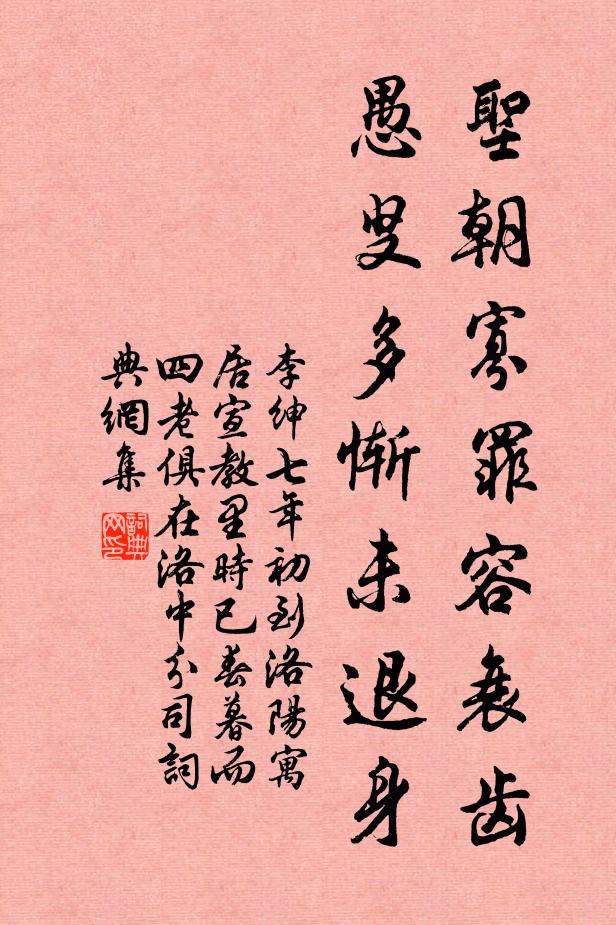 聖朝寡罪容衰齿
愚叟多慚未退身
李紳七年初到洛陽寓
居宣教里時已春暮而
四老俱在洛中分司詞
典網集
詞典
网印